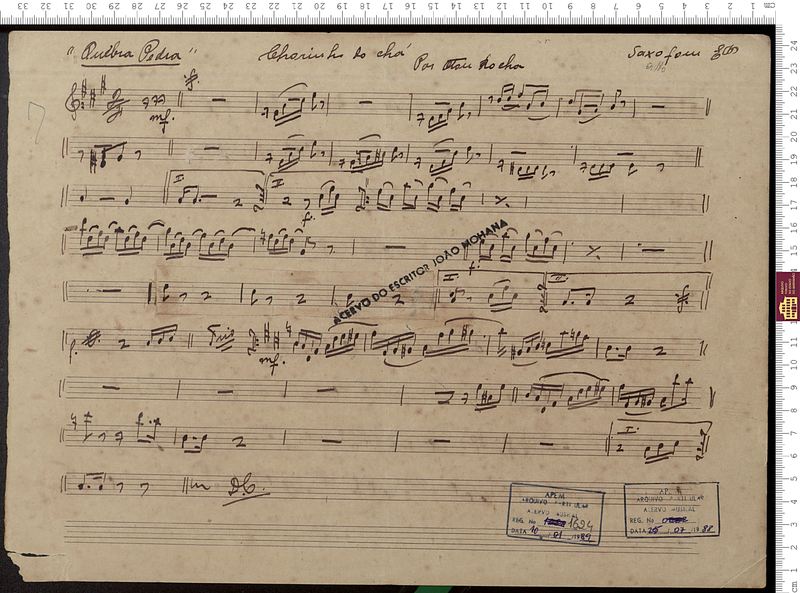 "Quebra Pedra" Chorinho do chá Saxofone
Por Otou Rocha
mf.
I II
f.
ACERVO DO ESCRITOR JOÃO MOHANA
I II
f.
Trio
mf.
I.
D.C.
APEM
ARQUIVO PARTICULAR
ACERVO MUSICAL
REG. No 1694
DATA 10 / 01 / 1989
AP
ARQUIVO PARTICULAR
ACERVO MUSICAL
REG. No
DATA 25 / 07 / 1988